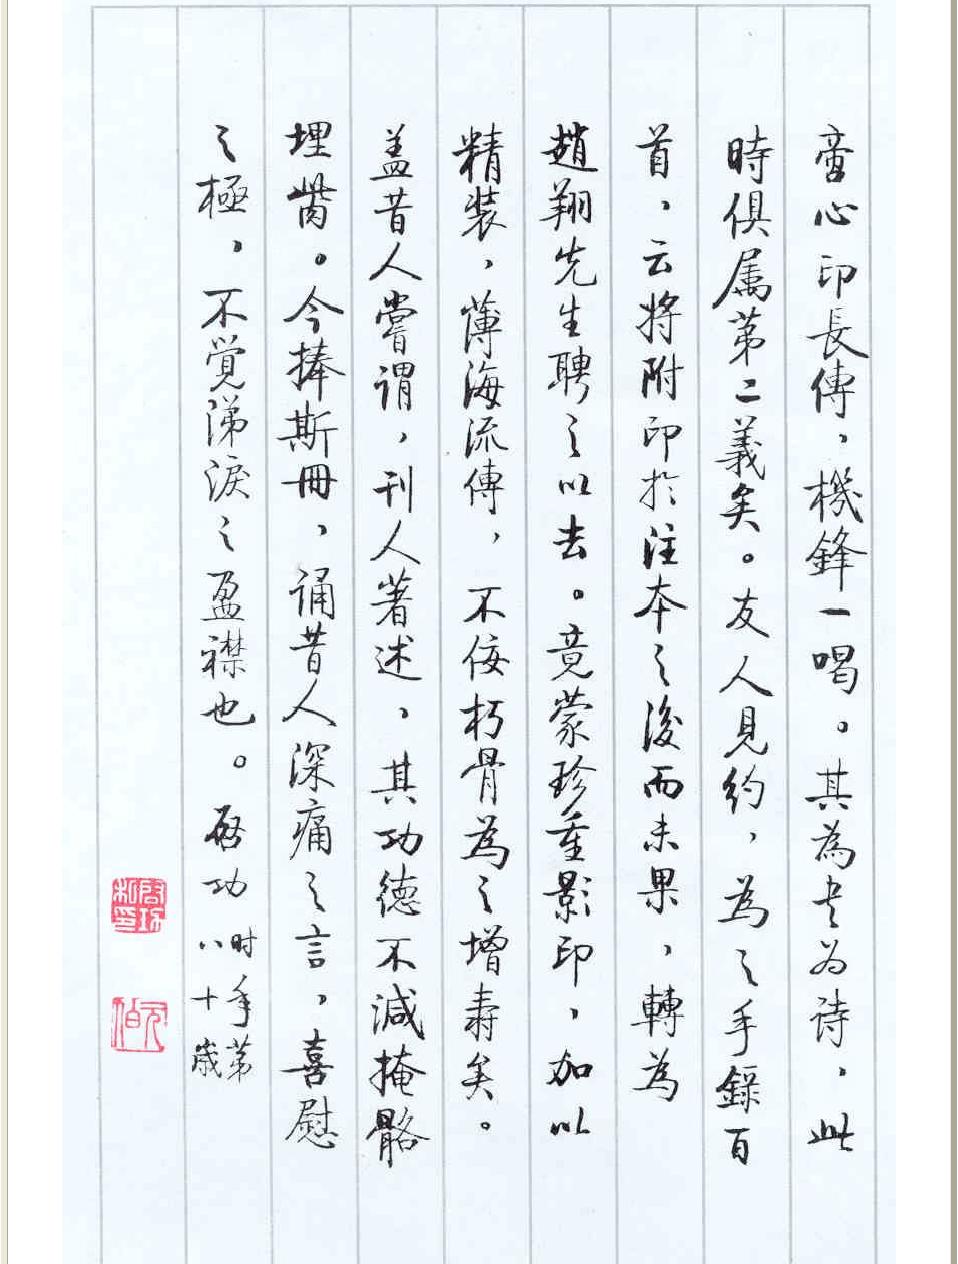 壹心印長傳，機鋒一喝。其為書为詩，此
時俱属第二義矣。友人見約，為之手錄百
首，云將附印於注本之後而未果，轉為
趙翔先生聘之以去。竟蒙珍重影印，加以
精裝，薄海流傳，不佞朽骨為之增壽矣。
盖昔人嘗謂，刊人著述，其功德不減掩骼
埋胔。今捧斯冊，誦昔人深痛之言，喜慰
之極，不覺涕淚之盈襟也。啟功 时年第八十歲
啓功私印